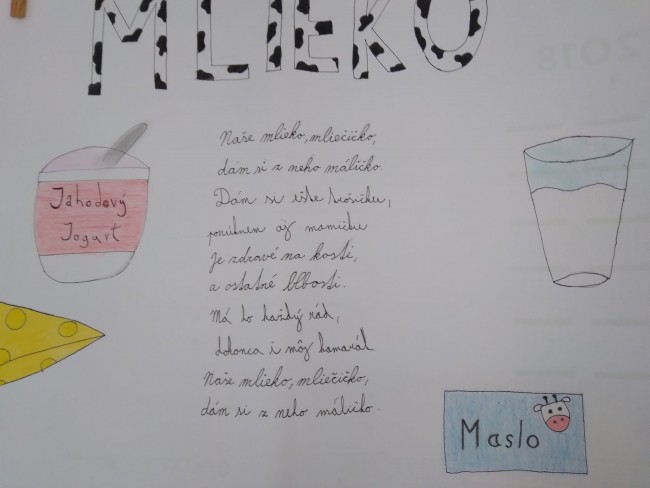 MLIEKO
Naše mlieko, mliečičko,
dám si z neho máličko.
Dám si ešte trošičku,
ponúknem aj mamičku
Je zdravé na kosti,
a ostatné blbosti.
Má to každý rád,
dokonca i môj kamarát
Naše mlieko, mliečičko,
dám si z neho máličko.
Jahodový
Jogurt
Maslo
2018